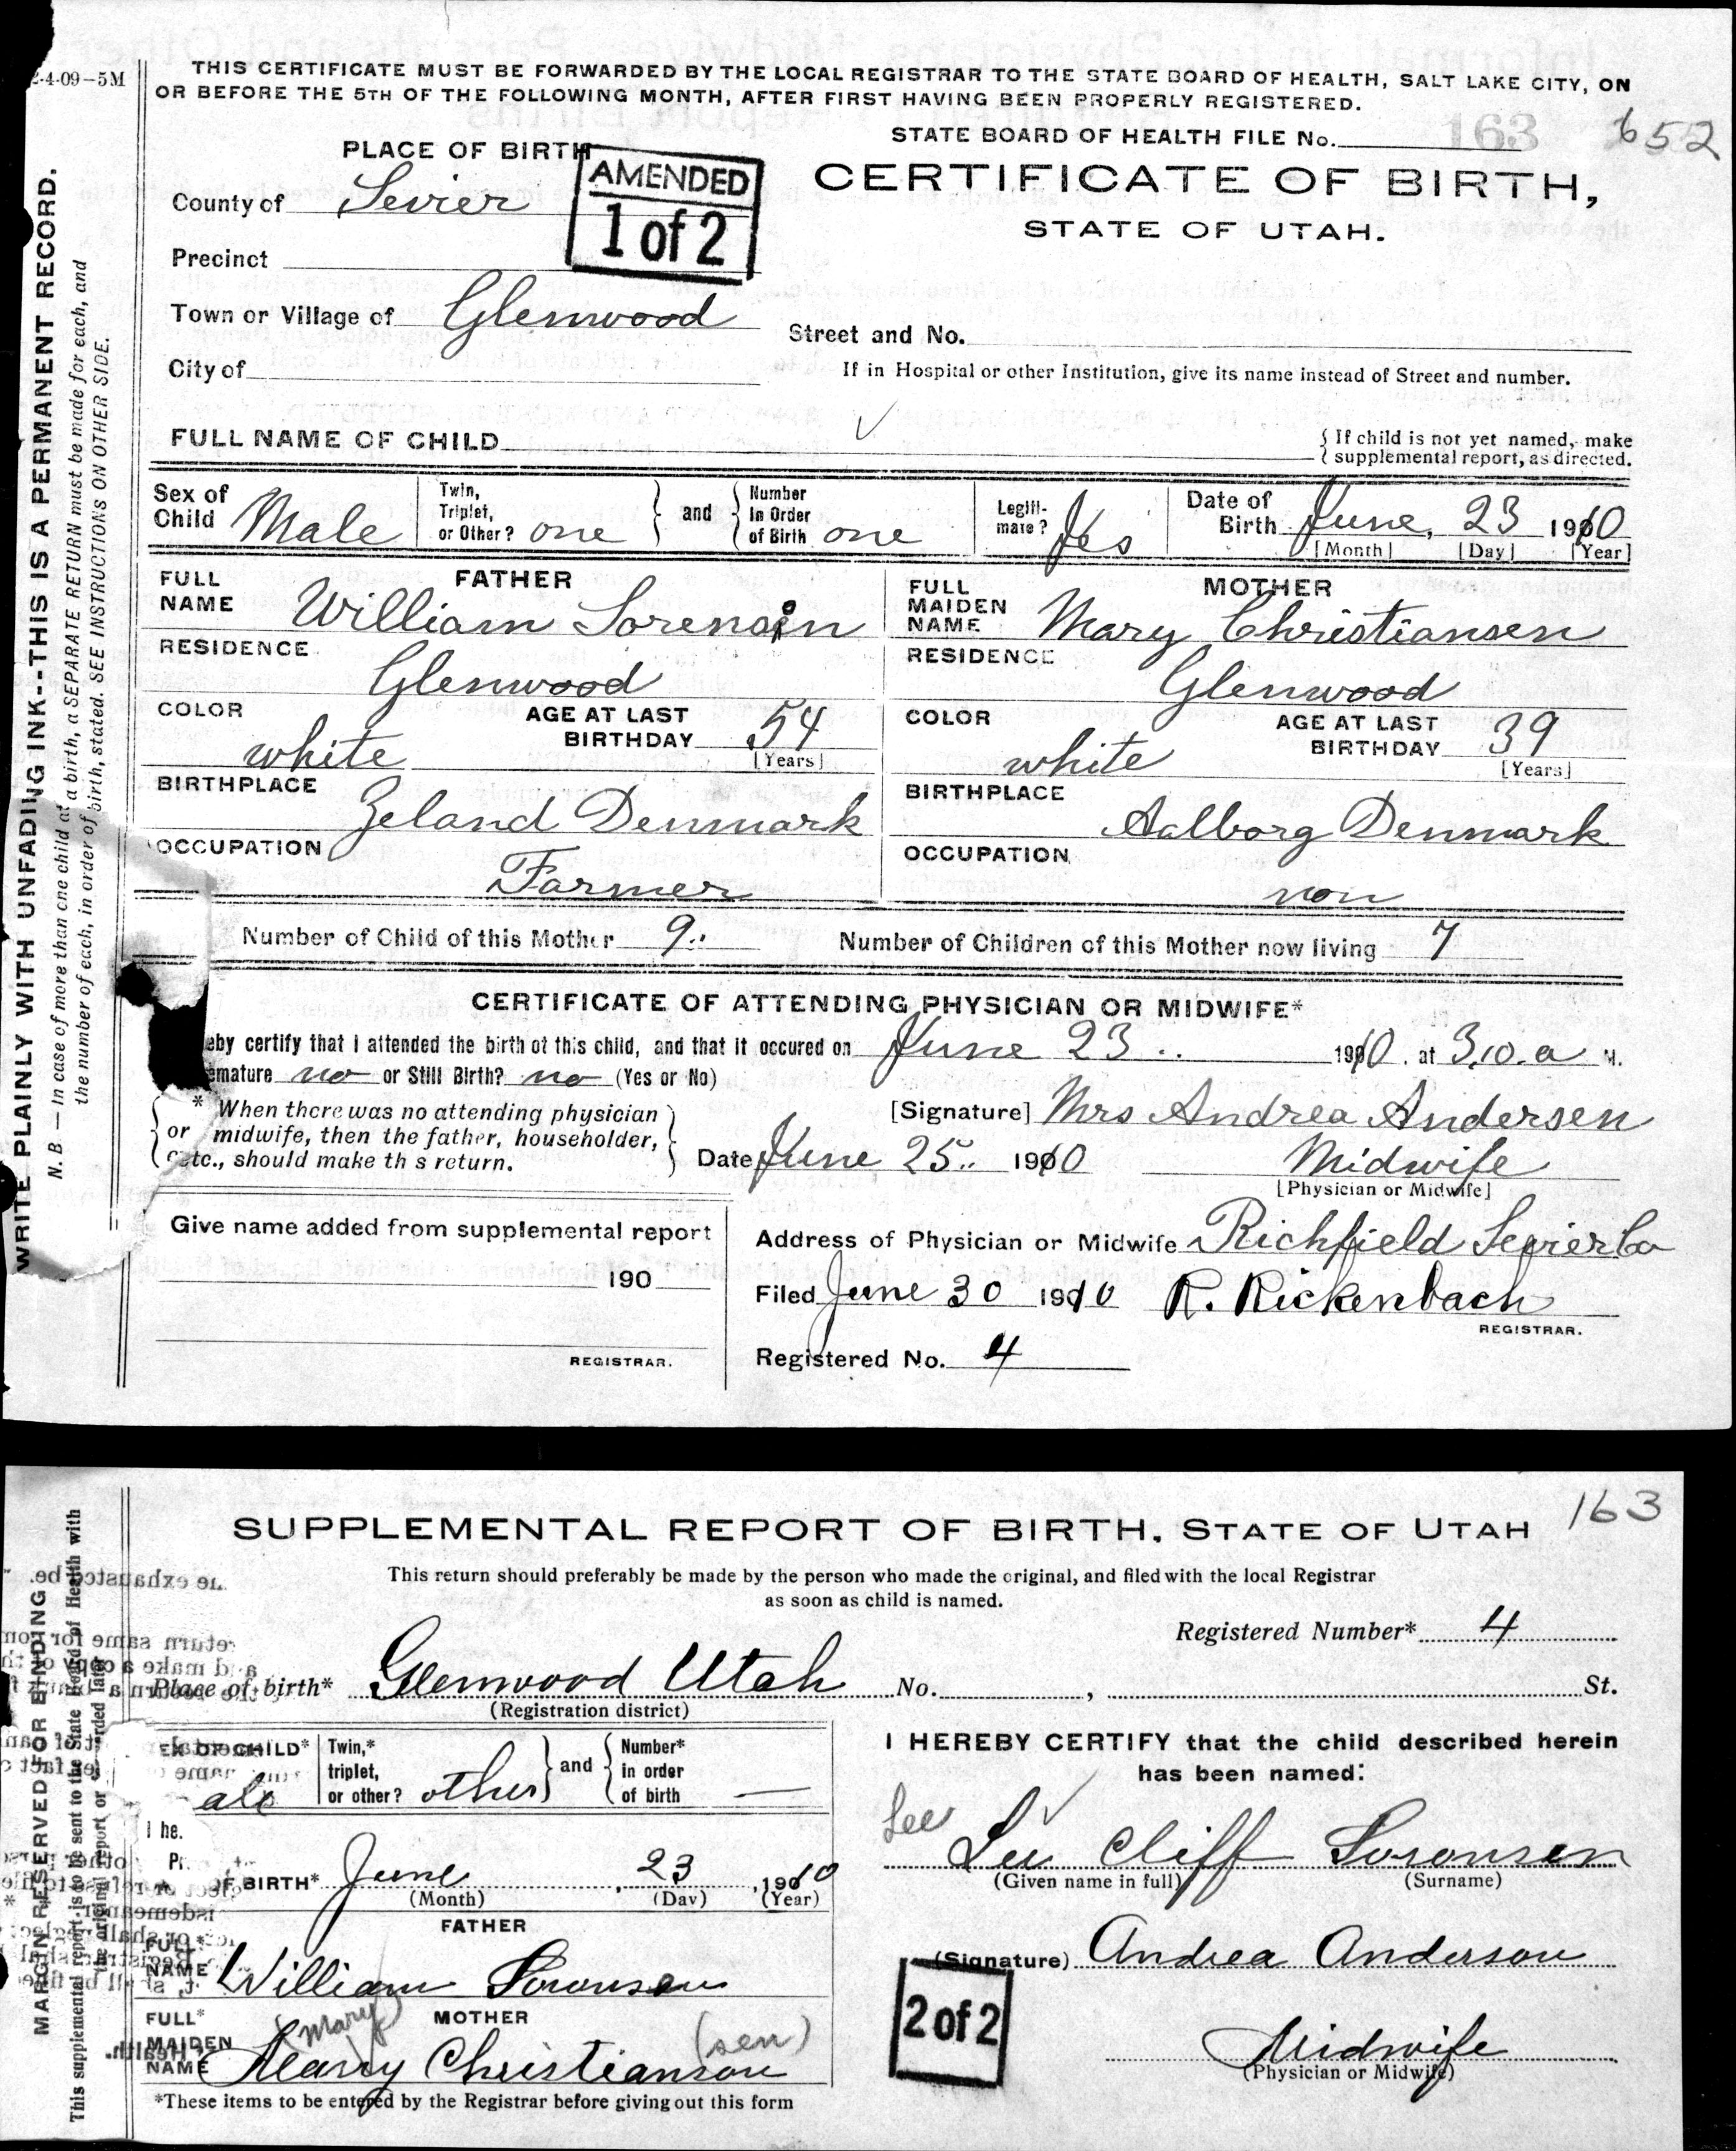 2-4-09-5M
THIS CERTIFICATE MUST BE FORWARDED BY THE LOCAL REGISTRAR TO THE STATE BOARD OF HEALTH, SALT LAKE CITY, ON
OR BEFORE THE 5TH OF THE FOLLOWING MONTH, AFTER FIRST HAVING BEEN PROPERLY REGISTERED.
STATE BOARD OF HEALTH FILE No. 163 652
PLACE OF BIRTH
AMENDED
1 of 2
CERTIFICATE OF BIRTH,
STATE OF UTAH.
County of Sevier
Precinct
Town or Village of Glenwood
Street and No.
City of
If in Hospital or other Institution, give its name instead of Street and number.
FULL NAME OF CHILD
{ If child is not yet named, make
{ supplemental report, as directed.
Sex of Child Male
Twin, Triplet, or Other? one } and { Number In Order of Birth one
Legiti-mate? Yes
Date of Birth June, 23 1910
[Month] [Day] [Year]
FATHER
FULL NAME William Sorensin
RESIDENCE
Glenwood
COLOR white
AGE AT LAST BIRTHDAY 54
[Years]
BIRTHPLACE
Zeland Denmark
OCCUPATION
Farmer
MOTHER
FULL MAIDEN NAME Mary Christiansen
RESIDENCE
Glenwood
COLOR white
AGE AT LAST BIRTHDAY 39
[Years]
BIRTHPLACE
Aalborg Denmark
OCCUPATION
non
Number of Child of this Mother 9.. Number of Children of this Mother now living 7
CERTIFICATE OF ATTENDING PHYSICIAN OR MIDWIFE*
eby certify that I attended the birth of this child, and that it occured on June 23 .. 1910. at 3.10. a M.
emature no or Still Birth? no (Yes or No)
* When there was no attending physician
or midwife, then the father, householder,
etc., should make th s return.
[Signature] Mrs Andrea Andersen
Date June 25.. 1910 Midwife
[Physician or Midwife]
Give name added from supplemental report
190
REGISTRAR.
Address of Physician or Midwife Richfield Sevier Co
Filed June 30 1910 R. Rickenbach
REGISTRAR.
Registered No. 4
WRITE PLAINLY WITH UNFADING INK--THIS IS A PERMANENT RECORD.
N. B — In case of more than one child at a birth, a SEPARATE RETURN must be made for each, and
the number of each, in order of birth, stated. SEE INSTRUCTIONS ON OTHER SIDE.
163
SUPPLEMENTAL REPORT OF BIRTH, STATE OF UTAH
This return should preferably be made by the person who made the original, and filed with the local Registrar
as soon as child is named.
Registered Number* 4
Place of birth* Glenwood Utah No. , St.
(Registration district)
EX OF CHILD* ale
Twin,* triplet, or other? other } and { Number* in order of birth —
OF BIRTH* June , 23 , 1910
(Month) (Day) (Year)
FATHER
FULL* NAME William Soronsen
MOTHER
FULL* MAIDEN NAME Marry Christianson
(Mary) (sen)
*These items to be entered by the Registrar before giving out this form
I HEREBY CERTIFY that the child described herein
has been named:
Lee
Lee Cliff Soronsen
(Given name in full) (Surname)
(Signature) Andrea Anderson
2 of 2
Midwife
(Physician or Midwife)
MARGIN RESERVED FOR BINDING
This supplemental report is to be sent to the State Board of Health with
the original report or